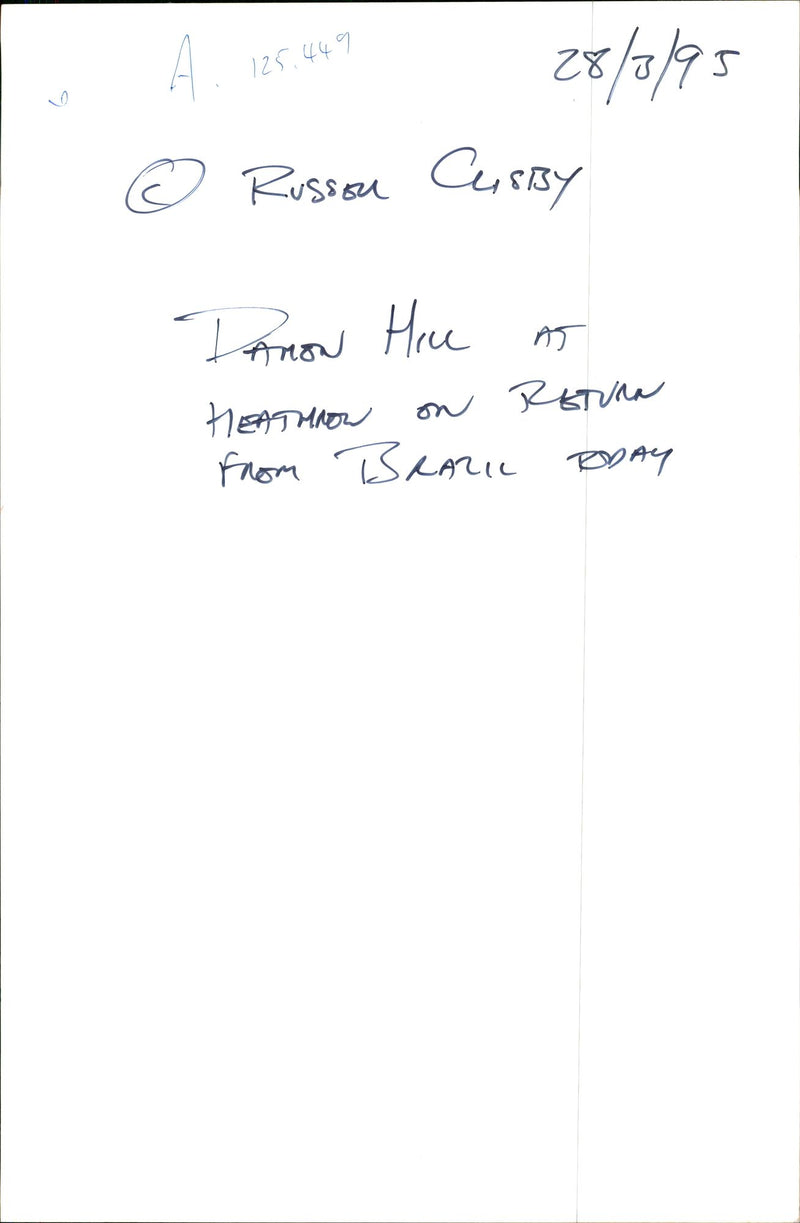 A. 125.449
28/3/95
© RUSSELL CLISBY
DAMON HILL AT
HEATHROW ON RETURN
FROM BRAZIL TODAY